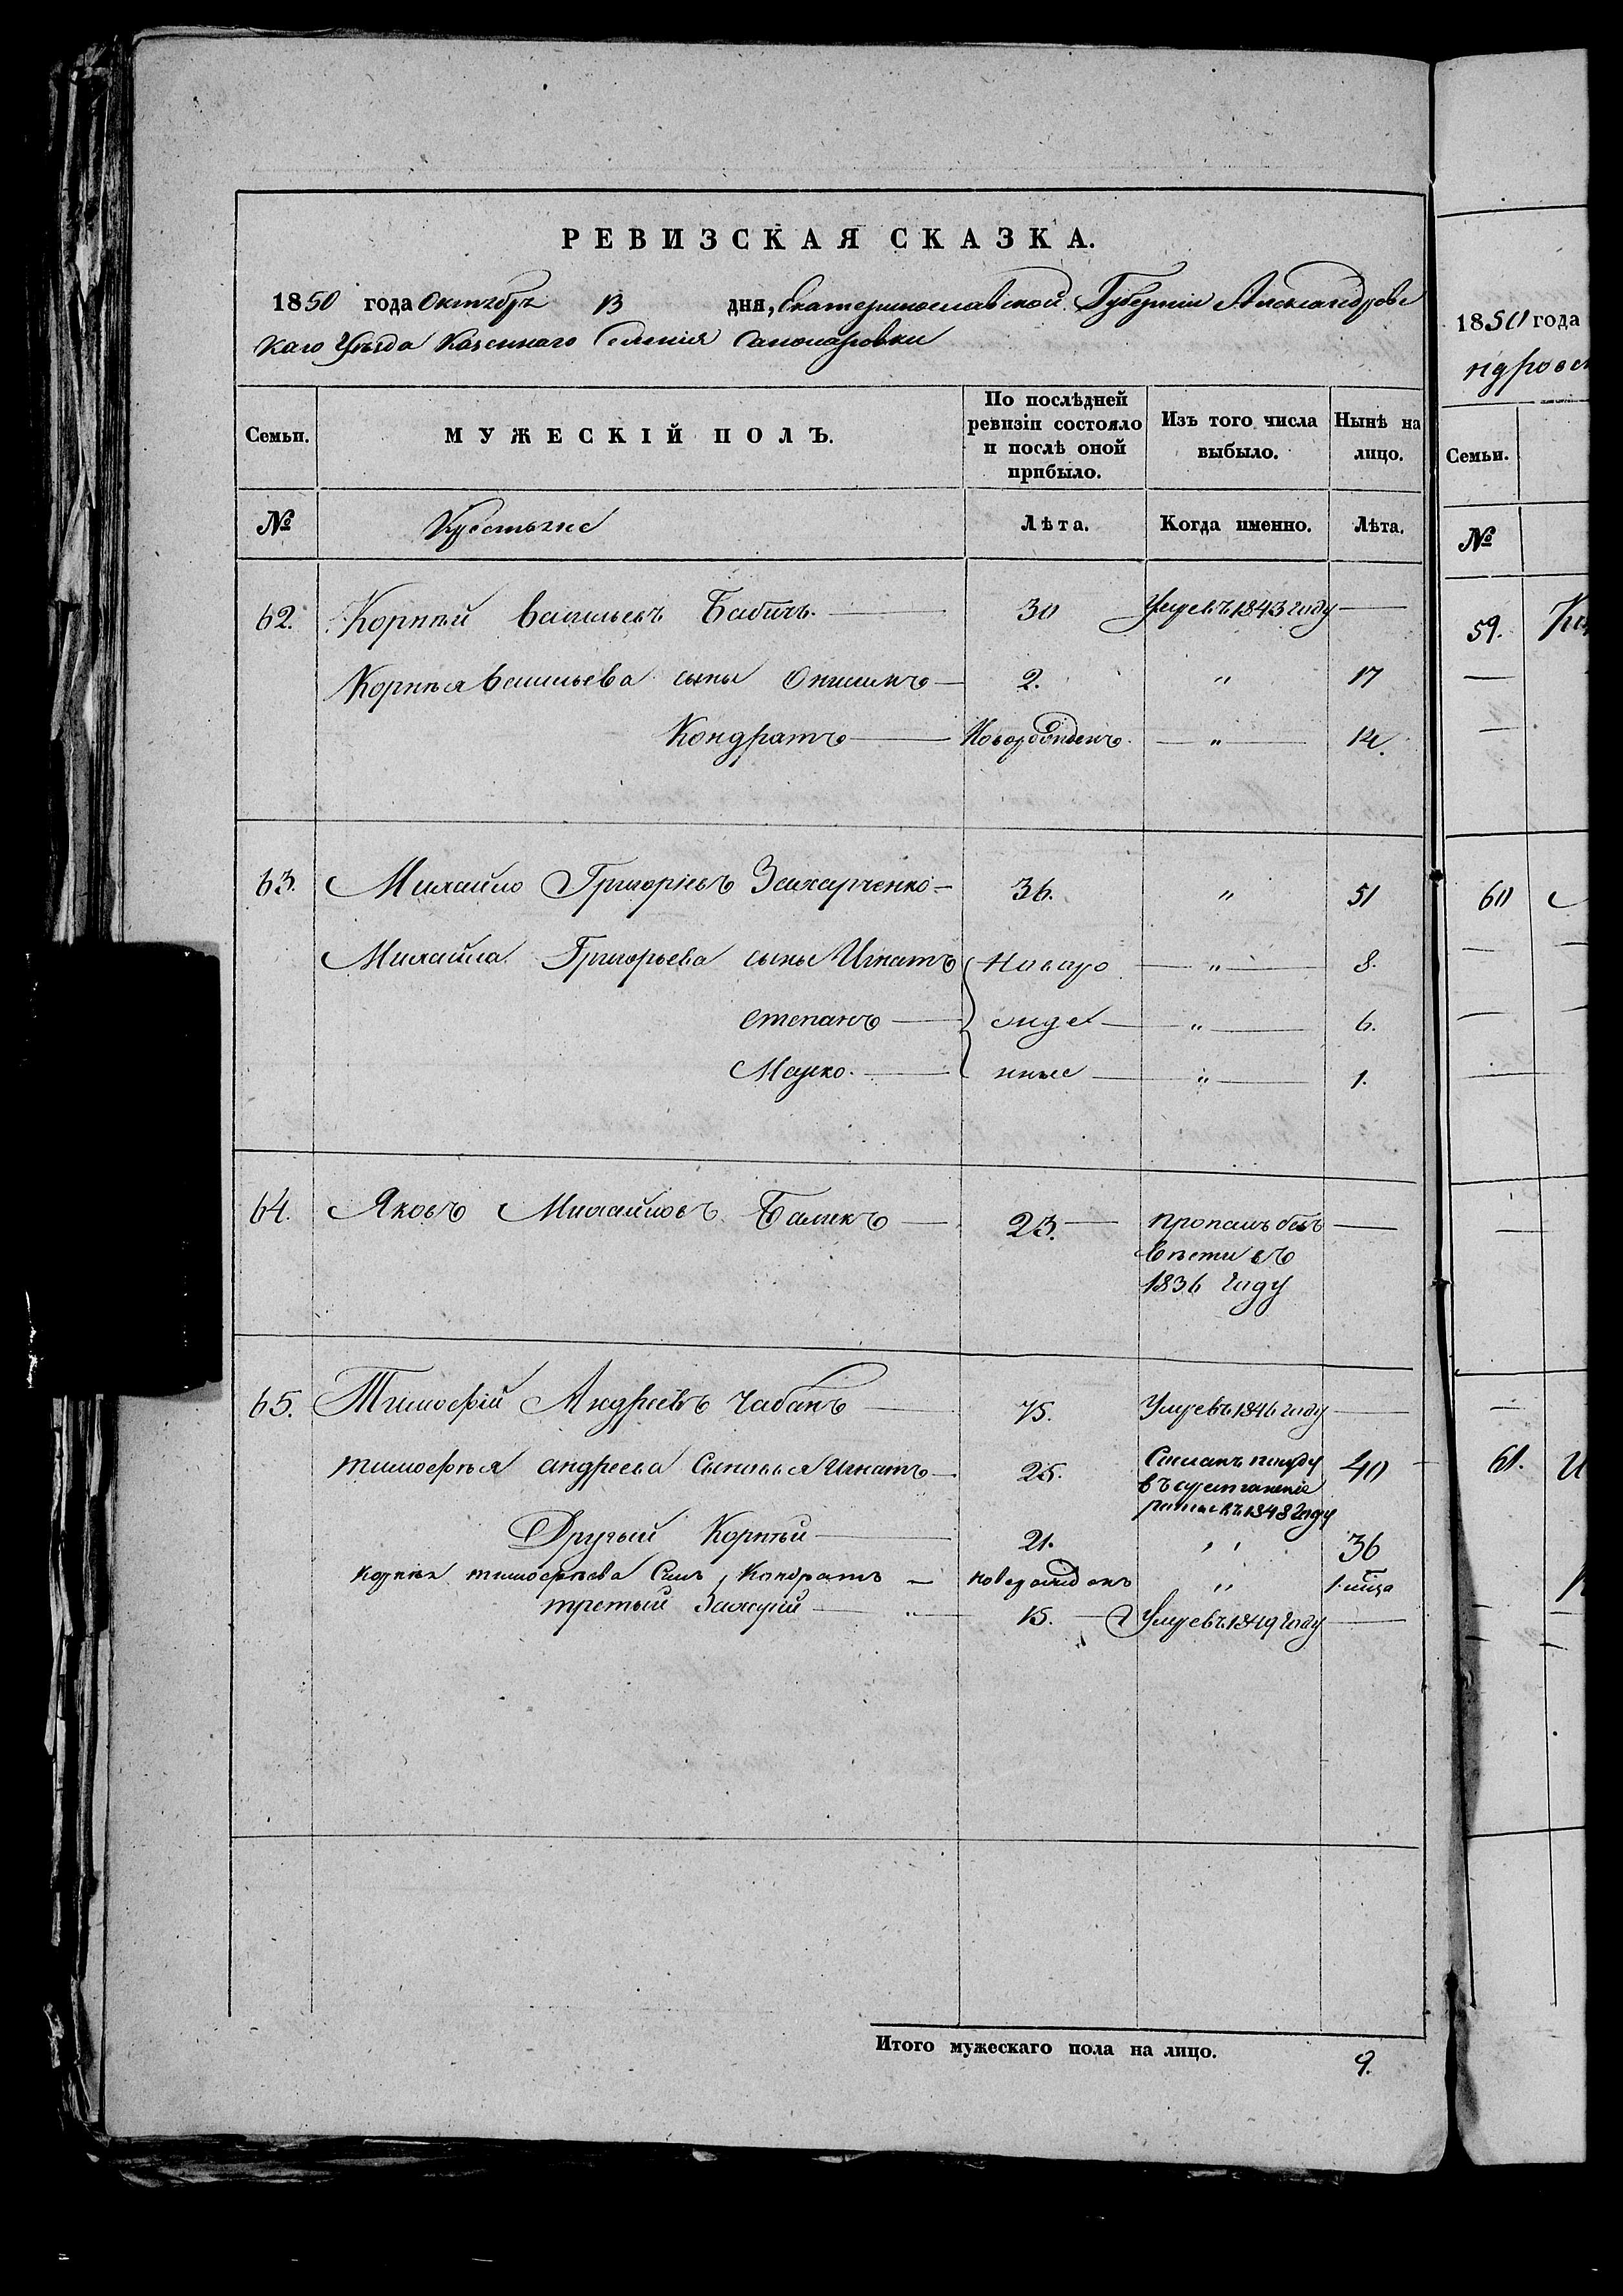 РЕВИЗСКАЯ СКАЗКА.
1850 года Октября 13 дня, Екатеринославской Губернiи Александровс
каго Уѣзда Казеннаго Селенiя Сапонаровки
Семьи. МУЖЕСКIЙ ПОЛЪ. По послѣдней ревизiи состояло и послѣ оной прибыло. Изъ того числа выбыло. Нынѣ на лицо.
№ Крестьяне Лѣта. Когда именно. Лѣта.
62. Корнѣй Васильевъ Бабичъ. 30 Умеръ въ 1843 году
Корнѣя Васильева сыны Онисимъ 2. " 17
Кондратъ Новорожденъ " 14.
63. Михайло Григорьевъ Захарченко 36. " 51
Михайла Григорьева сыны Игнатъ Новоро " 8.
Степанъ жде " 6.
Марко. нные " 1.
64. Яковъ Михайловъ Баликъ 23. пропалъ безъ
вѣсти въ
1836 году
65. Тимофѣй Андреевъ Чабанъ 75. Умеръ въ 1846 году
Тимофѣя Андреева Сыновья Игнатъ 25. 40
въ 1848 году
Другий Корнѣй 21. " 36
Корнѣя Тимофѣева Сынъ Кондратъ новорожденъ " 1.
третий 15. Умеръ въ 1849 году
Итого мужескаго пола на лицо. 9.
1850 года
ндровс
Семьи.
№
59.
60
61.